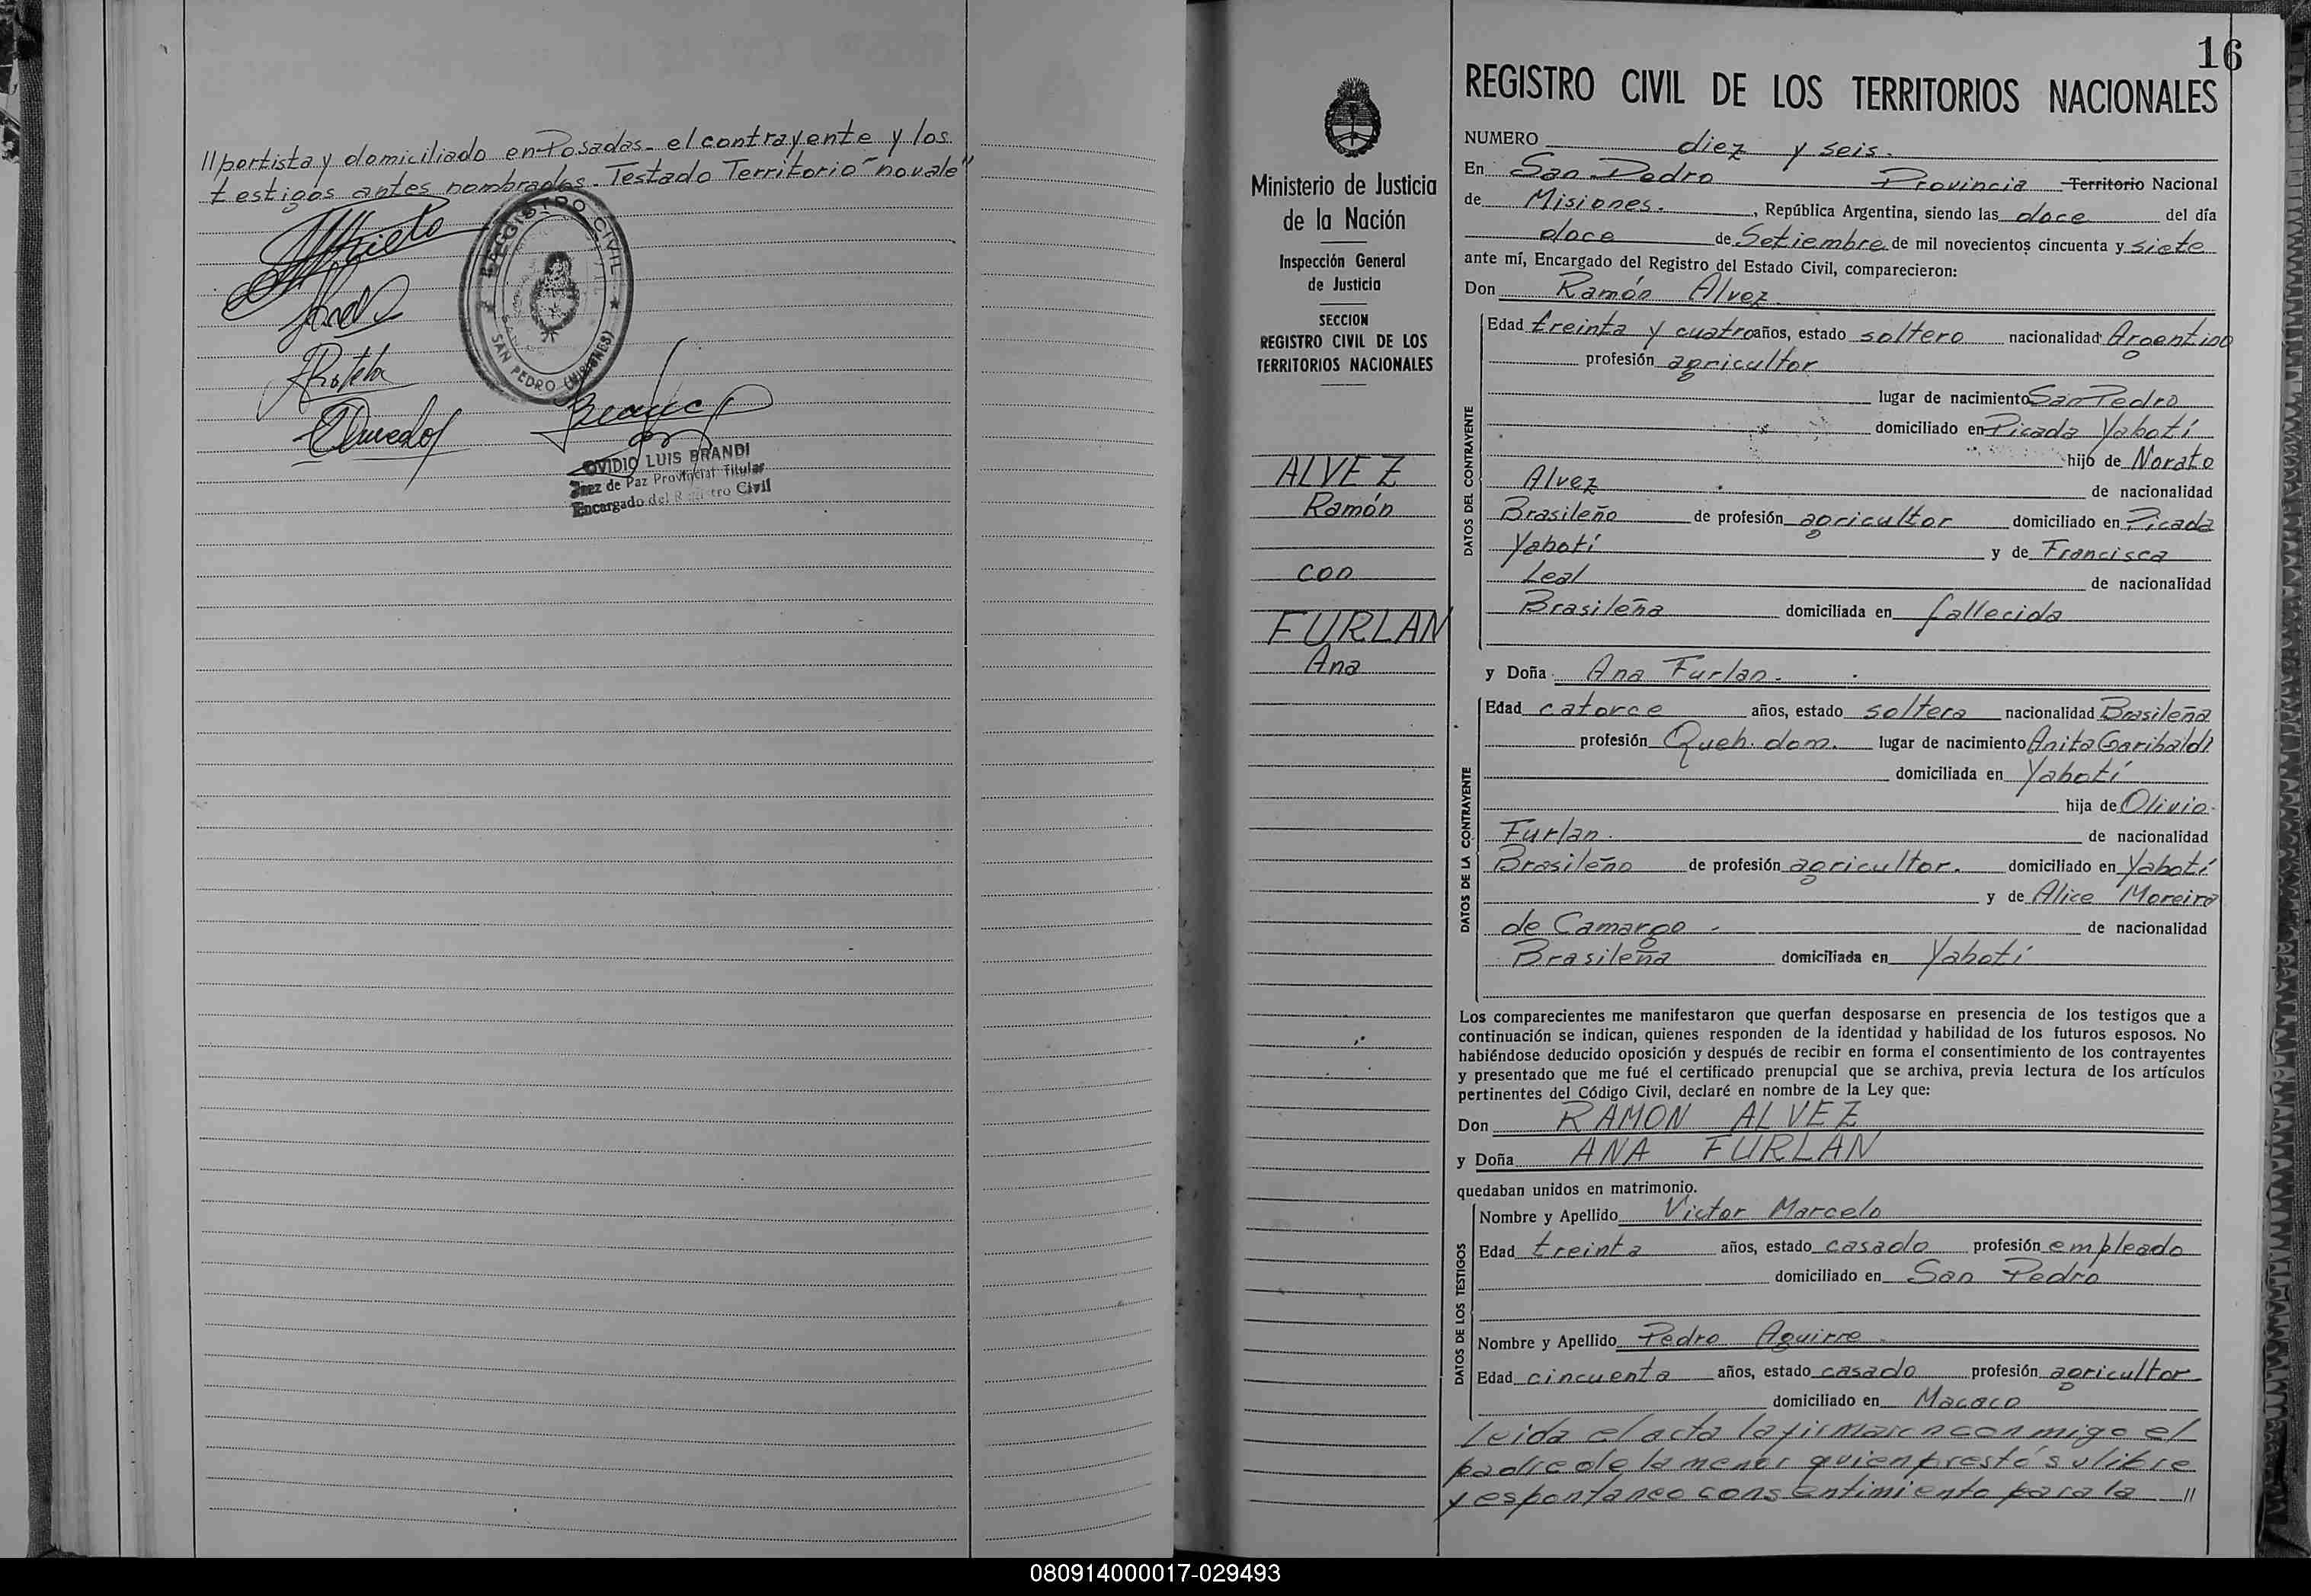 // portista y domiciliado en Posadas. el contrayente y los
testigos antes nombrados. Testado Territorio "no vale"
REGISTRO CIVIL
SAN PEDRO (MISIONES)
OVIDIO LUIS BRANDI
Juez de Paz Provincial Titular
Encargado del Registro Civil
16
Ministerio de Justicia
de la Nación
Inspección General
de Justicia
SECCION
REGISTRO CIVIL DE LOS
TERRITORIOS NACIONALES
ALVEZ
Ramón
con
FURLAN
Ana
REGISTRO CIVIL DE LOS TERRITORIOS NACIONALES
NUMERO diez y seis.
En San Pedro Provincia Territorio Nacional
de Misiones. , República Argentina, siendo las doce del día
doce de Setiembre de mil novecientos cincuenta y siete
ante mí, Encargado del Registro del Estado Civil, comparecieron:
Don Ramón Alvez
DATOS DEL CONTRAYENTE
Edad treinta y cuatro años, estado soltero nacionalidad Argentino
profesión agricultor
lugar de nacimiento San Pedro
domiciliado en Picada Yabotí
hijo de Norato
Alvez de nacionalidad
Brasileño de profesión agricultor domiciliado en Picada
Yabotí y de Francisca
Leal de nacionalidad
Brasileña domiciliada en fallecida
y Doña Ana Furlan.
DATOS DE LA CONTRAYENTE
Edad catorce años, estado soltera nacionalidad Brasileña
profesión Queh. dom. lugar de nacimiento Anita Garibaldi
domiciliada en Yabotí
hija de Olivio
Furlan. de nacionalidad
Brasileño de profesión agricultor. domiciliado en Yabotí
y de Alice Moreira
de Camargo de nacionalidad
Brasileña domiciliada en Yabotí
Los comparecientes me manifestaron que querían desposarse en presencia de los testigos que a
continuación se indican, quienes responden de la identidad y habilidad de los futuros esposos. No
habiéndose deducido oposición y después de recibir en forma el consentimiento de los contrayentes
y presentado que me fué el certificado prenupcial que se archiva, previa lectura de los artículos
pertinentes del Código Civil, declaré en nombre de la Ley que:
Don RAMON ALVEZ
y Doña ANA FURLAN
quedaban unidos en matrimonio.
DATOS DE LOS TESTIGOS
Nombre y Apellido Victor Marcelo
Edad treinta años, estado casado profesión empleado
domiciliado en San Pedro
Nombre y Apellido Pedro Aguirre
Edad cincuenta años, estado casado profesión agricultor
domiciliado en Macaco
Leida el acta la firmaron conmigo el
padre de la menor quien prestó su libre
y espontaneo consentimiento para la //
080914000017-029493